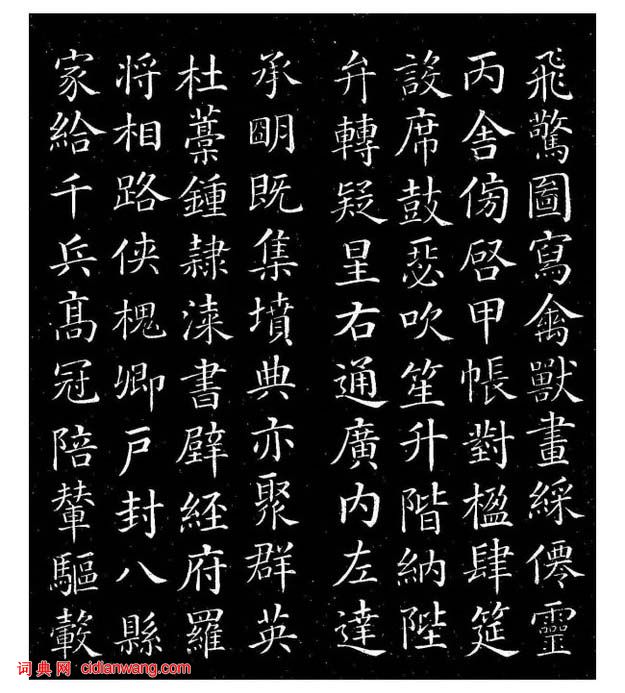 飛驚圖寫禽獸畫綵僊靈
丙舍傍啓甲帳對楹肆筵
設席鼓瑟吹笙升階納陛
弁轉疑星右通廣内左達
承明既集墳典亦聚群英
杜藁鍾隸漆書壁經府羅
将相路俠槐卿户封八縣
家給千兵高冠陪輦驅轂
词典网 cidianwang.com